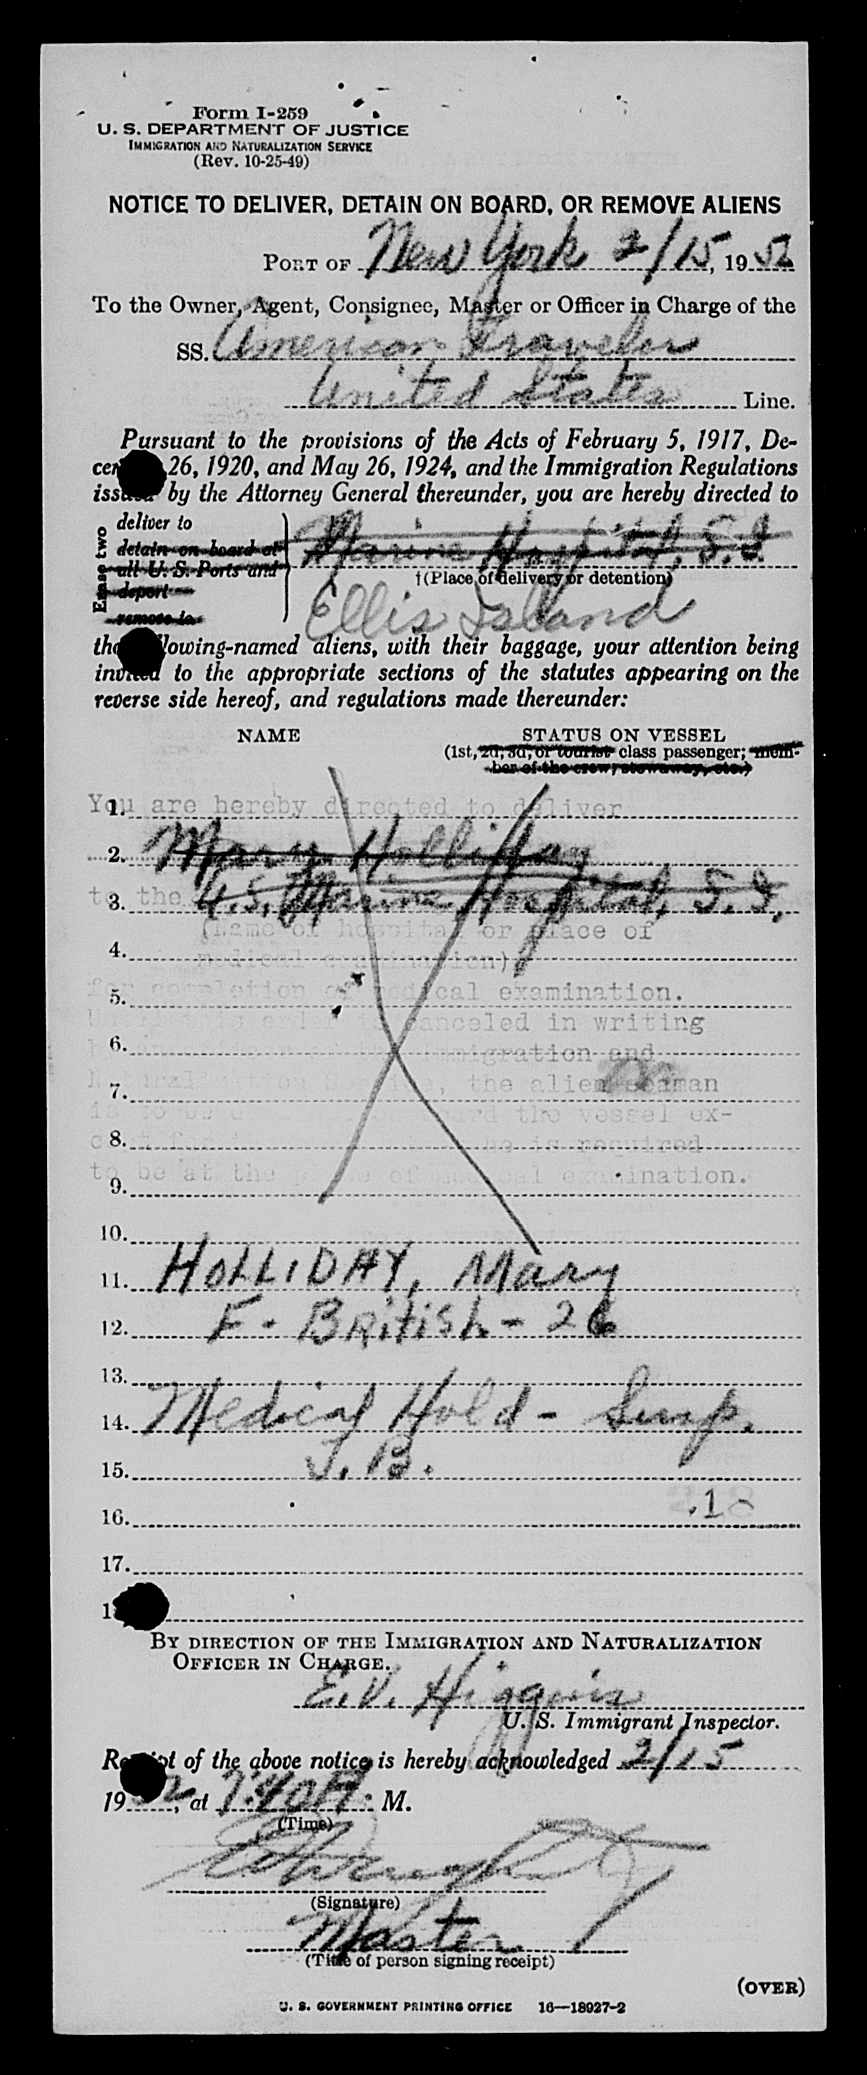 Form I-259
U. S. DEPARTMENT OF JUSTICE
IMMIGRATION AND NATURALIZATION SERVICE
(Rev. 10-25-49)
NOTICE TO DELIVER, DETAIN ON BOARD, OR REMOVE ALIENS
PORT OF New York 2/15, 1952
To the Owner, Agent, Consignee, Master or Officer in Charge of the
SS. American Traveler
United States Line.
Pursuant to the provisions of the Acts of February 5, 1917, De-
26, 1920, and May 26, 1924, and the Immigration Regulations
by the Attorney General thereunder, you are hereby directed to
Erase two
deliver to
detain on board at
all U. S. Ports and
deport
remove to
Marine Hospital, S.I.
†(Place of delivery or detention)
Ellis Island
following-named aliens, with their baggage, your attention being
invited to the appropriate sections of the statutes appearing on the
reverse side hereof, and regulations made thereunder:
NAME STATUS ON VESSEL
(1st, 2d, 3d, or tourist class passenger; mem-
ber of the crew, stowaway, etc.)
1. You are hereby directed to deliver
2. Mary Holliday
3. to the U.S. Marine Hospital, S.I.
(Name of hospital or place of
4. medical examination)
5. for completion of medical examination.
canceled in writing
6. Immigration and
7. the alien seaman
the vessel ex-
8. he is required
9. to be at the place of medical examination.
10.
11. HOLLIDAY, Mary
12. F - British - 26
13.
14. Medical Hold - Susp.
15. T. B.
16. .18
17.
BY DIRECTION OF THE IMMIGRATION AND NATURALIZATION
OFFICER IN CHARGE.
E.V. Higgins
U. S. Immigrant Inspector.
Receipt of the above notice is hereby acknowledged 2/15
1952, at 7:40 A. M.
(Time)
(Signature)
Master
(Title of person signing receipt)
(OVER)
U. S. GOVERNMENT PRINTING OFFICE 16—18927-2